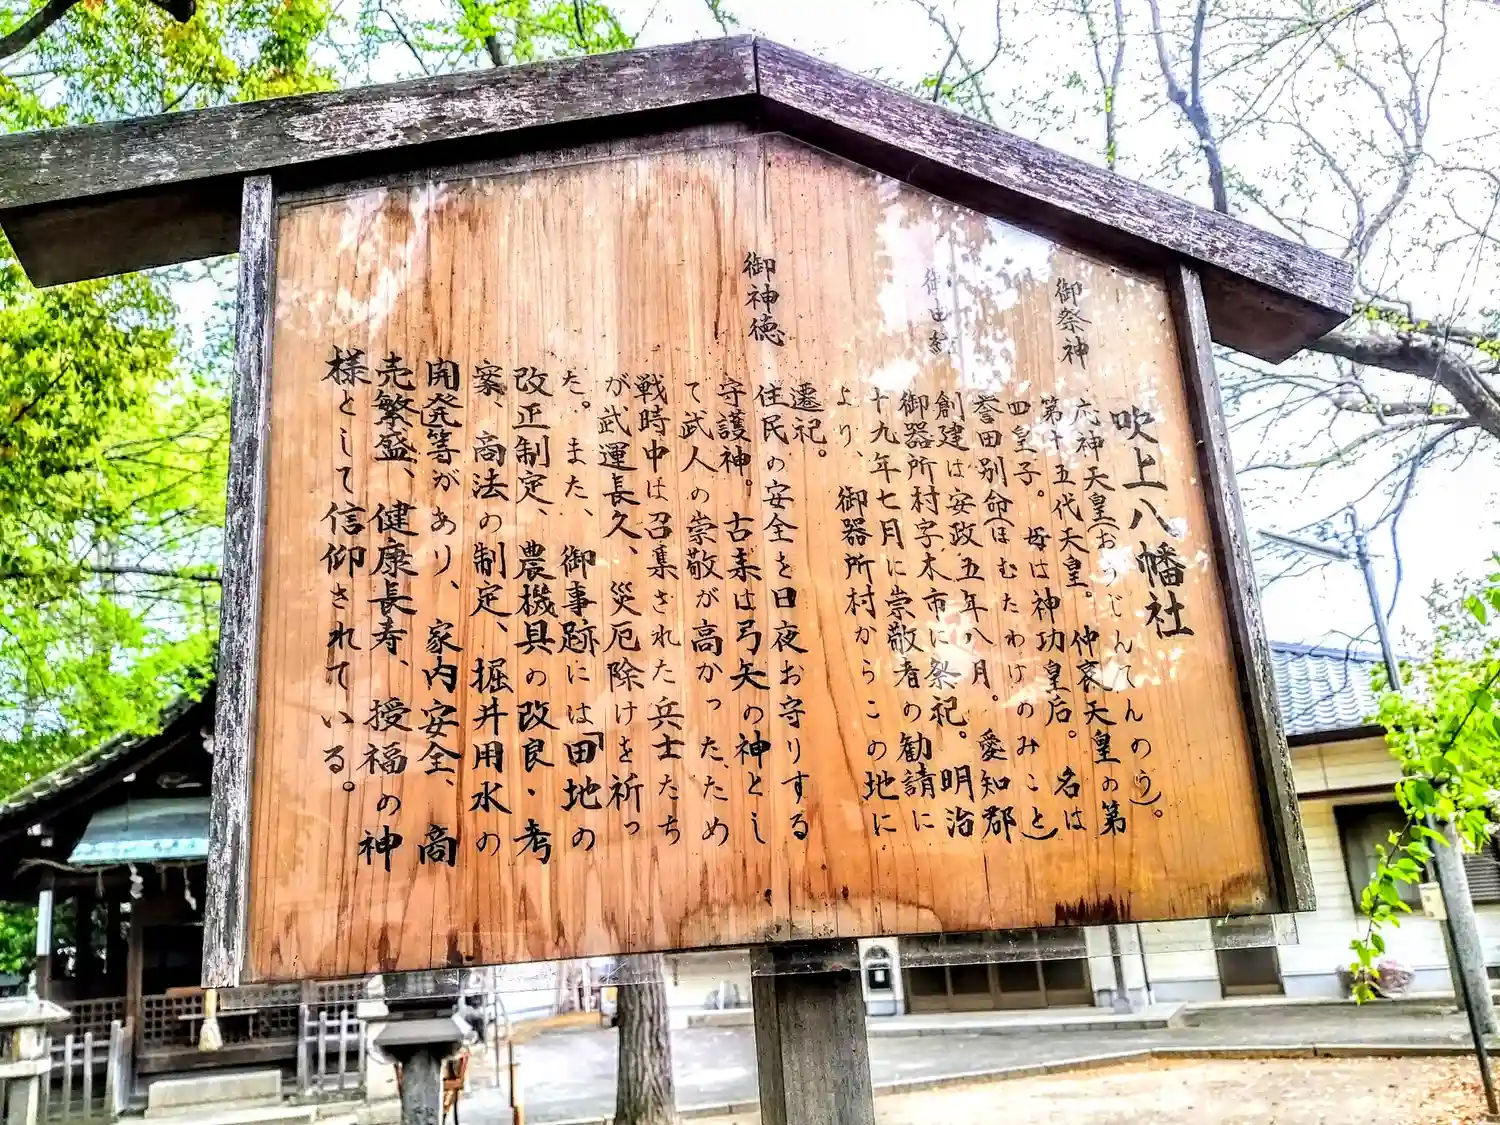 吹上八幡社
御祭神
応神天皇(おうじんてんのう)。
第十五代天皇。仲哀天皇の第
四皇子。母は神功皇后。名は
誉田別命(ほむたわけのみこと)
御由緒
創建は安政五年八月。愛知郡
御器所村字木市に祭祀。明治
十九年七月に崇敬者の勧請に
より、御器所村からこの地に
遷祀。
御神徳
住民の安全を日夜お守りする
守護神。古来は弓矢の神とし
て武人の崇敬が高かったため
戦時中は召集された兵士たち
が武運長久、災厄除けを祈っ
た。また、御事跡には「田地の
改正制定、農機具の改良・考
案、商法の制定、掘井用水の
開発等があり、家内安全、商
売繁盛、健康長寿、授福の神
様として信仰されている。